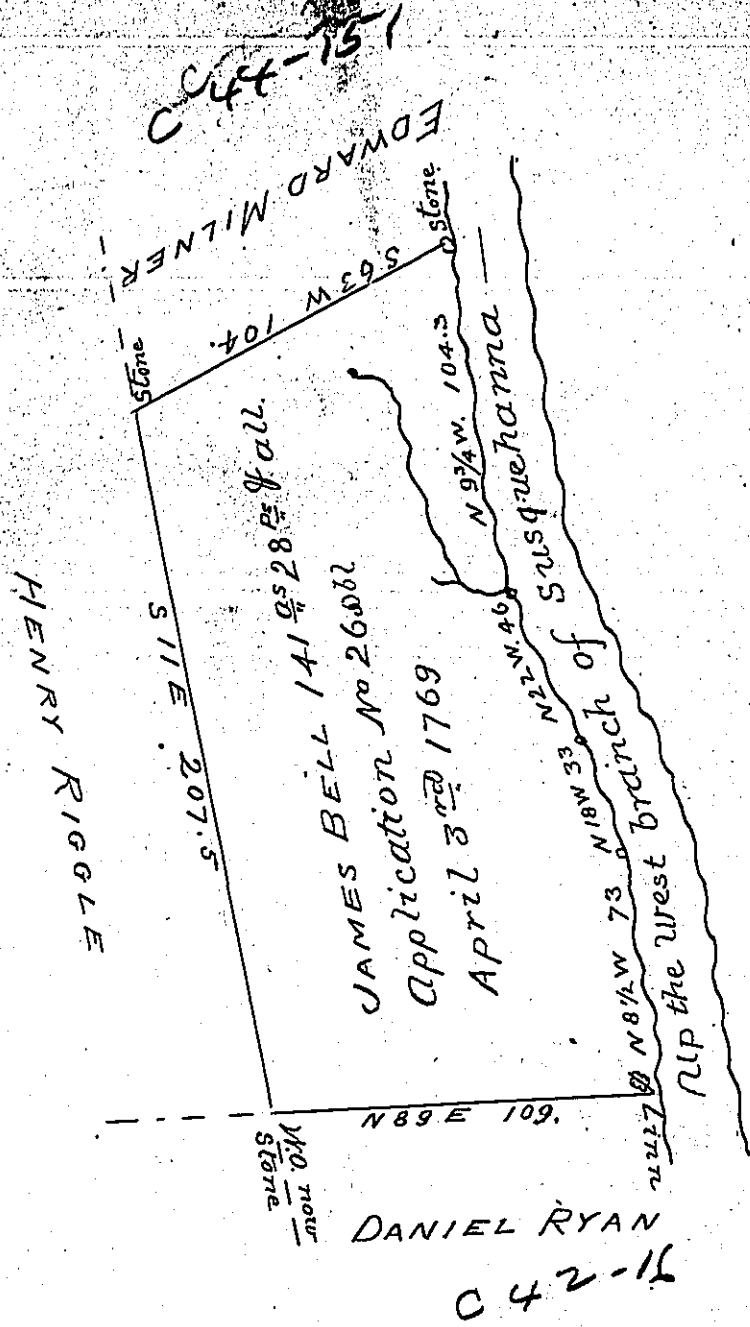 EDWARD MILNER
Stone
S 63 W 104.
Stone
HENRY RIGGLE
S 11 E 207.5
JAMES BELL 141 as 28 ps & all.
Application No
April 3rd 1769
N 9 3/4 W. 104.3
N 22 W. 46
N 18 W 33
N 8 1/2 W 73
Up the West branch of Susquehanna
Linn
N 89 E 109.
W.O. now
Stone
DANIEL RYAN